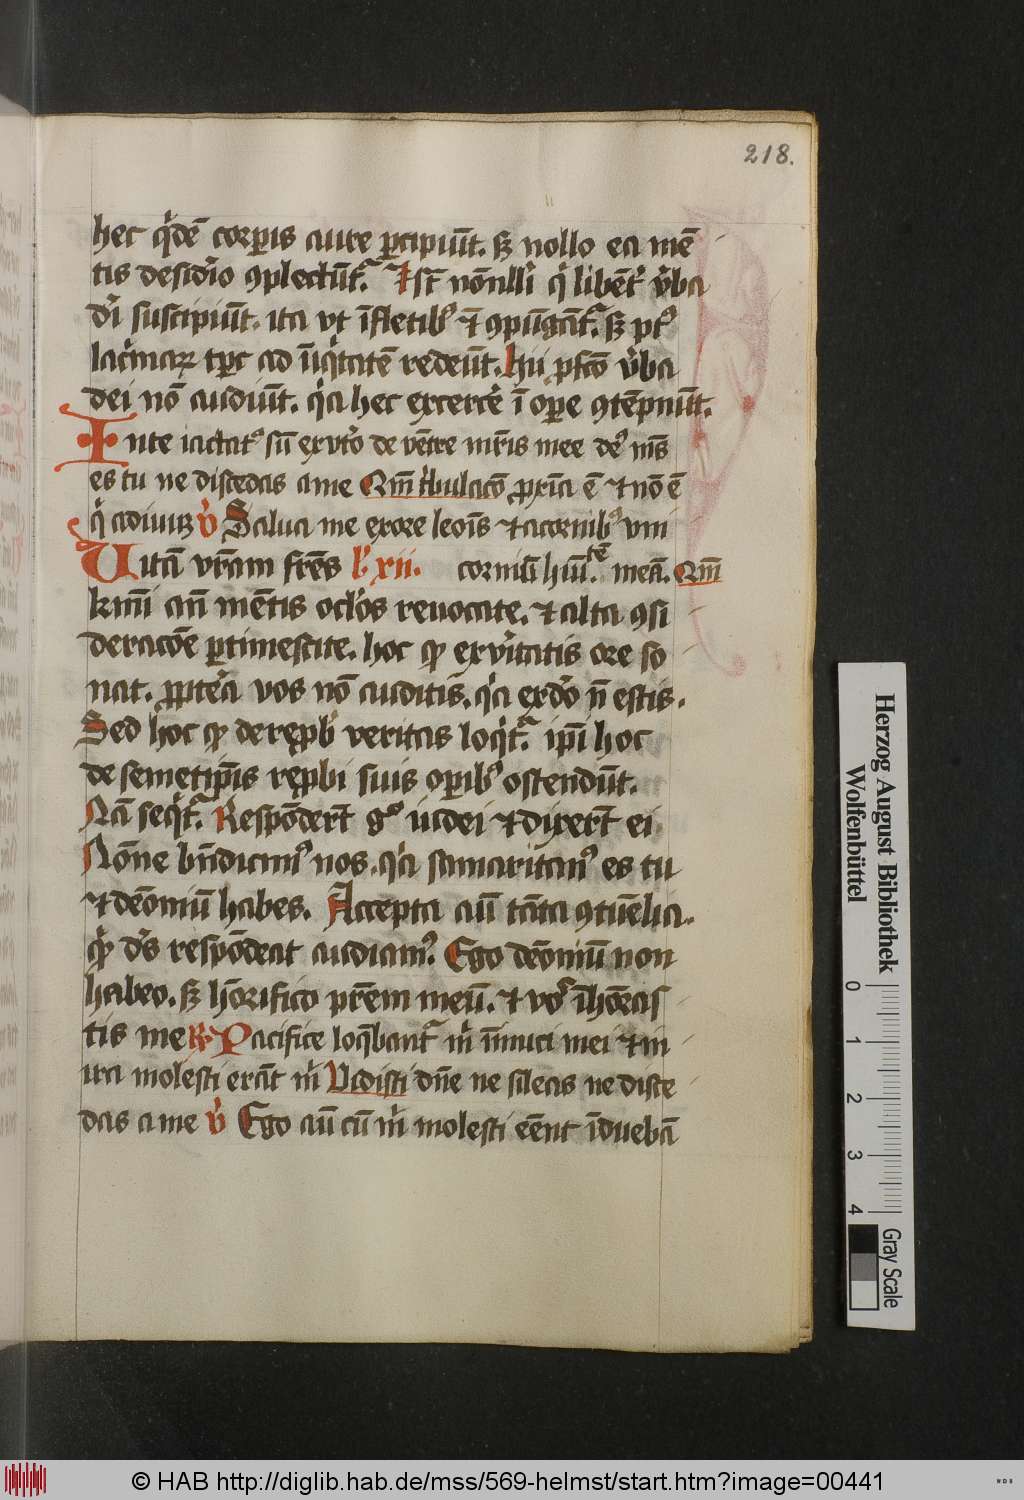 218.
hec q̇dē corꝑis aure ꝑcipiūt. sꝫ nollo ea mē
tis desid'io ꝯplectūt᷑. Isꝉ nōnulli q̇ libēt' v̓ba
dı̄ suscipiūt. ita vt ı̄ fletib⁹ ⁊ ꝯpūgāt᷑. sꝫ pꝰ
lac'imaꝝ tꝑc ad īiq̇tatē redeūt. hii ꝓfco v̓ba
dei nō audiūt. q̇a hec ex'cere ı̄ oꝑe ꝯtēpnūt.
In te iactatꝰ sū ex vt'o de vētre mr̄is mee deꝰ mꝰs
es tu ne discedas a me Qm̄ t'bulaco ꝓxı̄a ē ⁊ nō ē
q̇ adiuuꝫ v̓ Salua me ex ore leōis ⁊ a cornibꝰ vni
Uitā vr̄am frēs lº xii. cornuū hūı̄tē meā. Qm̄
km̄i an̄ mētis oc'los reuocate. ⁊ alta ꝯsi
deracōe ꝑtimescite. hoc qꝫ ex v̓itatis ore so
nat. ꝓpt'ea vos nō auditis. q̇a ex do n̄ estis.
Sed hoc qꝫ de reꝓb' veritas loq̇t᷑. ip̄i hoc
de semetip̄is reꝓbi suis oꝑibꝰ ostendūt.
Nā seq̇t᷑. Respōderūt gº iudei ⁊ dixerūt ei
Nōne bn̄ dicimꝰ nos. q̇a samaritanꝰ es tu
⁊ demōiū habes. Accepta aū tāta ꝯtuelia.
q̇d dn̄s respōdeat audiamꝰ. Ego demōiū non
habeo. sꝫ hōrifico pr̄em meū. ⁊ vos ı̄hōras
tis me R̷ Pacifice loq̄bant᷑ m̓ ı̄imici mei ⁊ in
ira molesti erāt m̓ Vidisti dn̄e ne sileas ne disce
das a me v̓ Ego aū cū m̓ molesti eēnt ı̄duebā
Herzog August Bibliothek
Wolfenbüttel
0 1 2 3 4
Gray Scale
© HAB http://diglib.hab.de/mss/569-helmst/start.htm?image=00441